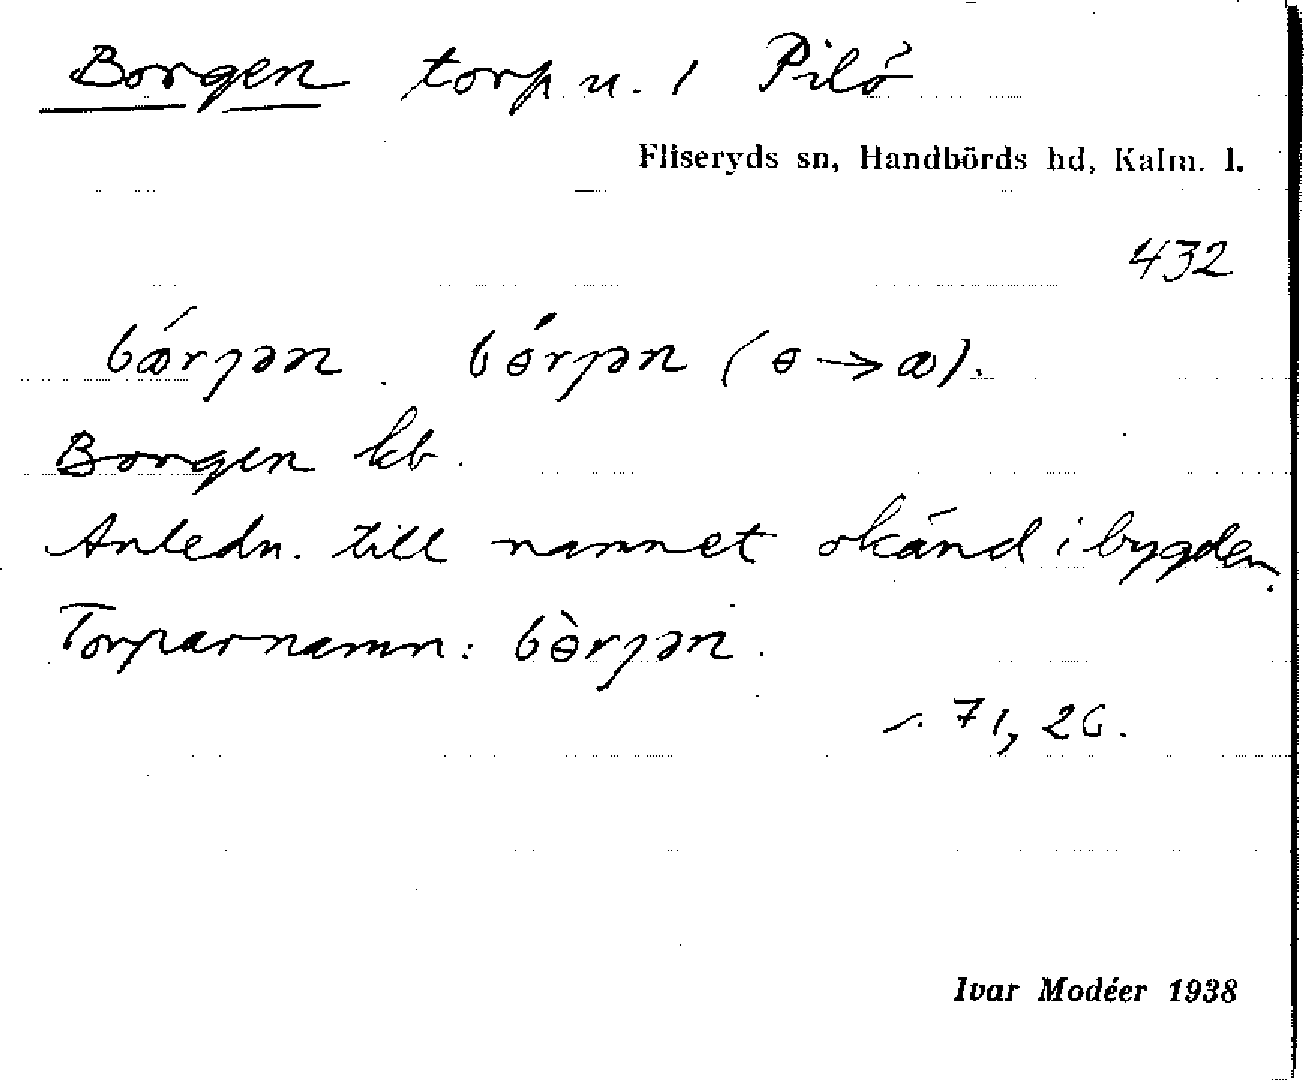 Borgen torp u. 1 Pilö
Fliseryds sn, Handbörds hd, Kalm. l.
432
bǽrɟən. bɵ́rɟən (ɵ → æ).
Borgen kb.
Anledn. till namnet okänd i bygden.
Torparnamn: bɵ̀rɟən.
s. 71, 26.
Ivar Modéer 1938